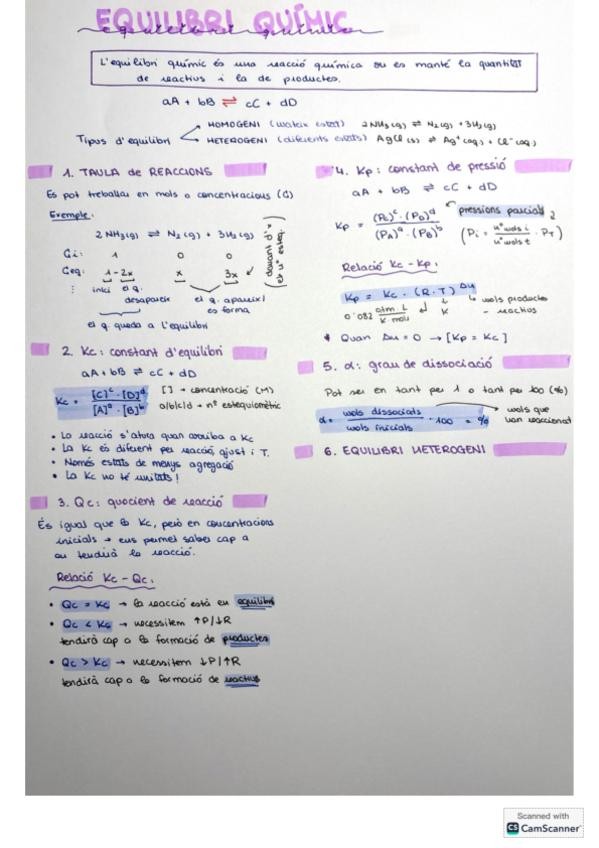 EQUILIBRI QUÍMIC
equilibri químic
L'equilibri químic és una reacció química on es manté la quantitat
de reactius i la de productes.
aA + bB ⇌ cC + dD
Tipus d'equilibri
HOMOGENI (mateix estat) 2NH3(g) ⇌ N2(g) + 3H2(g)
HETEROGENI (diferents estats) AgCl(s) ⇌ Ag+(aq) + Cl-(aq)
1. TAULA DE REACCIONS
Es pot treballar en mols o concentracions (C)
Exemple:
2 NH3(g) ⇌ N2(g) + 3H2(g)
Ci: 1 0 0
Ceq: 1-2x x 3x
(davant d'x el nº esteq.)
inici el q. desapareix
el q. apareix/
es forma
el q. queda a l'equilibri
2. Kc: constant d'equilibri
aA + bB ⇌ cC + dD
Kc = [C]^c · [D]^d / [A]^a · [B]^b
[ ] → concentració (M)
a/b/c/d → nº estequiomètric
• La reacció s'atura quan arriba a Kc
• La Kc és diferent per reacció, ajust i T.
• Només estats de menys agregació
• La Kc no té unitats!
3. Qc: quocient de reacció
És igual que la Kc, però en concentracions
inicials → ens permet saber cap a
on tendirà la reacció.
Relació Kc - Qc:
• Qc = Kc → la reacció està en equilibri
• Qc < Kc → necessitem ↑P/↓R
tendirà cap a la formació de productes
• Qc > Kc → necessitem ↓P/↑R
tendirà cap a la formació de reactius
4. Kp: constant de pressió
aA + bB ⇌ cC + dD
Kp = (Pc)^c · (PD)^d / (PA)^a · (PB)^b
pressions parcials
(Pi = nº mols i / nº mols t · PT)
Relació Kc - Kp:
Kp = Kc · (R·T)^Δn
0'082 atm · L / K · mol
K
mols productes
- reactius
* Quan Δn = 0 → [Kp = Kc]
5. α: grau de dissociació
Pot ser en tant per 1 o tant per 100 (%)
α = mols dissociats / mols inicials · 100 = %
mols que
han reaccionat
6. EQUILIBRI HETEROGENI
Scanned with
CS CamScanner